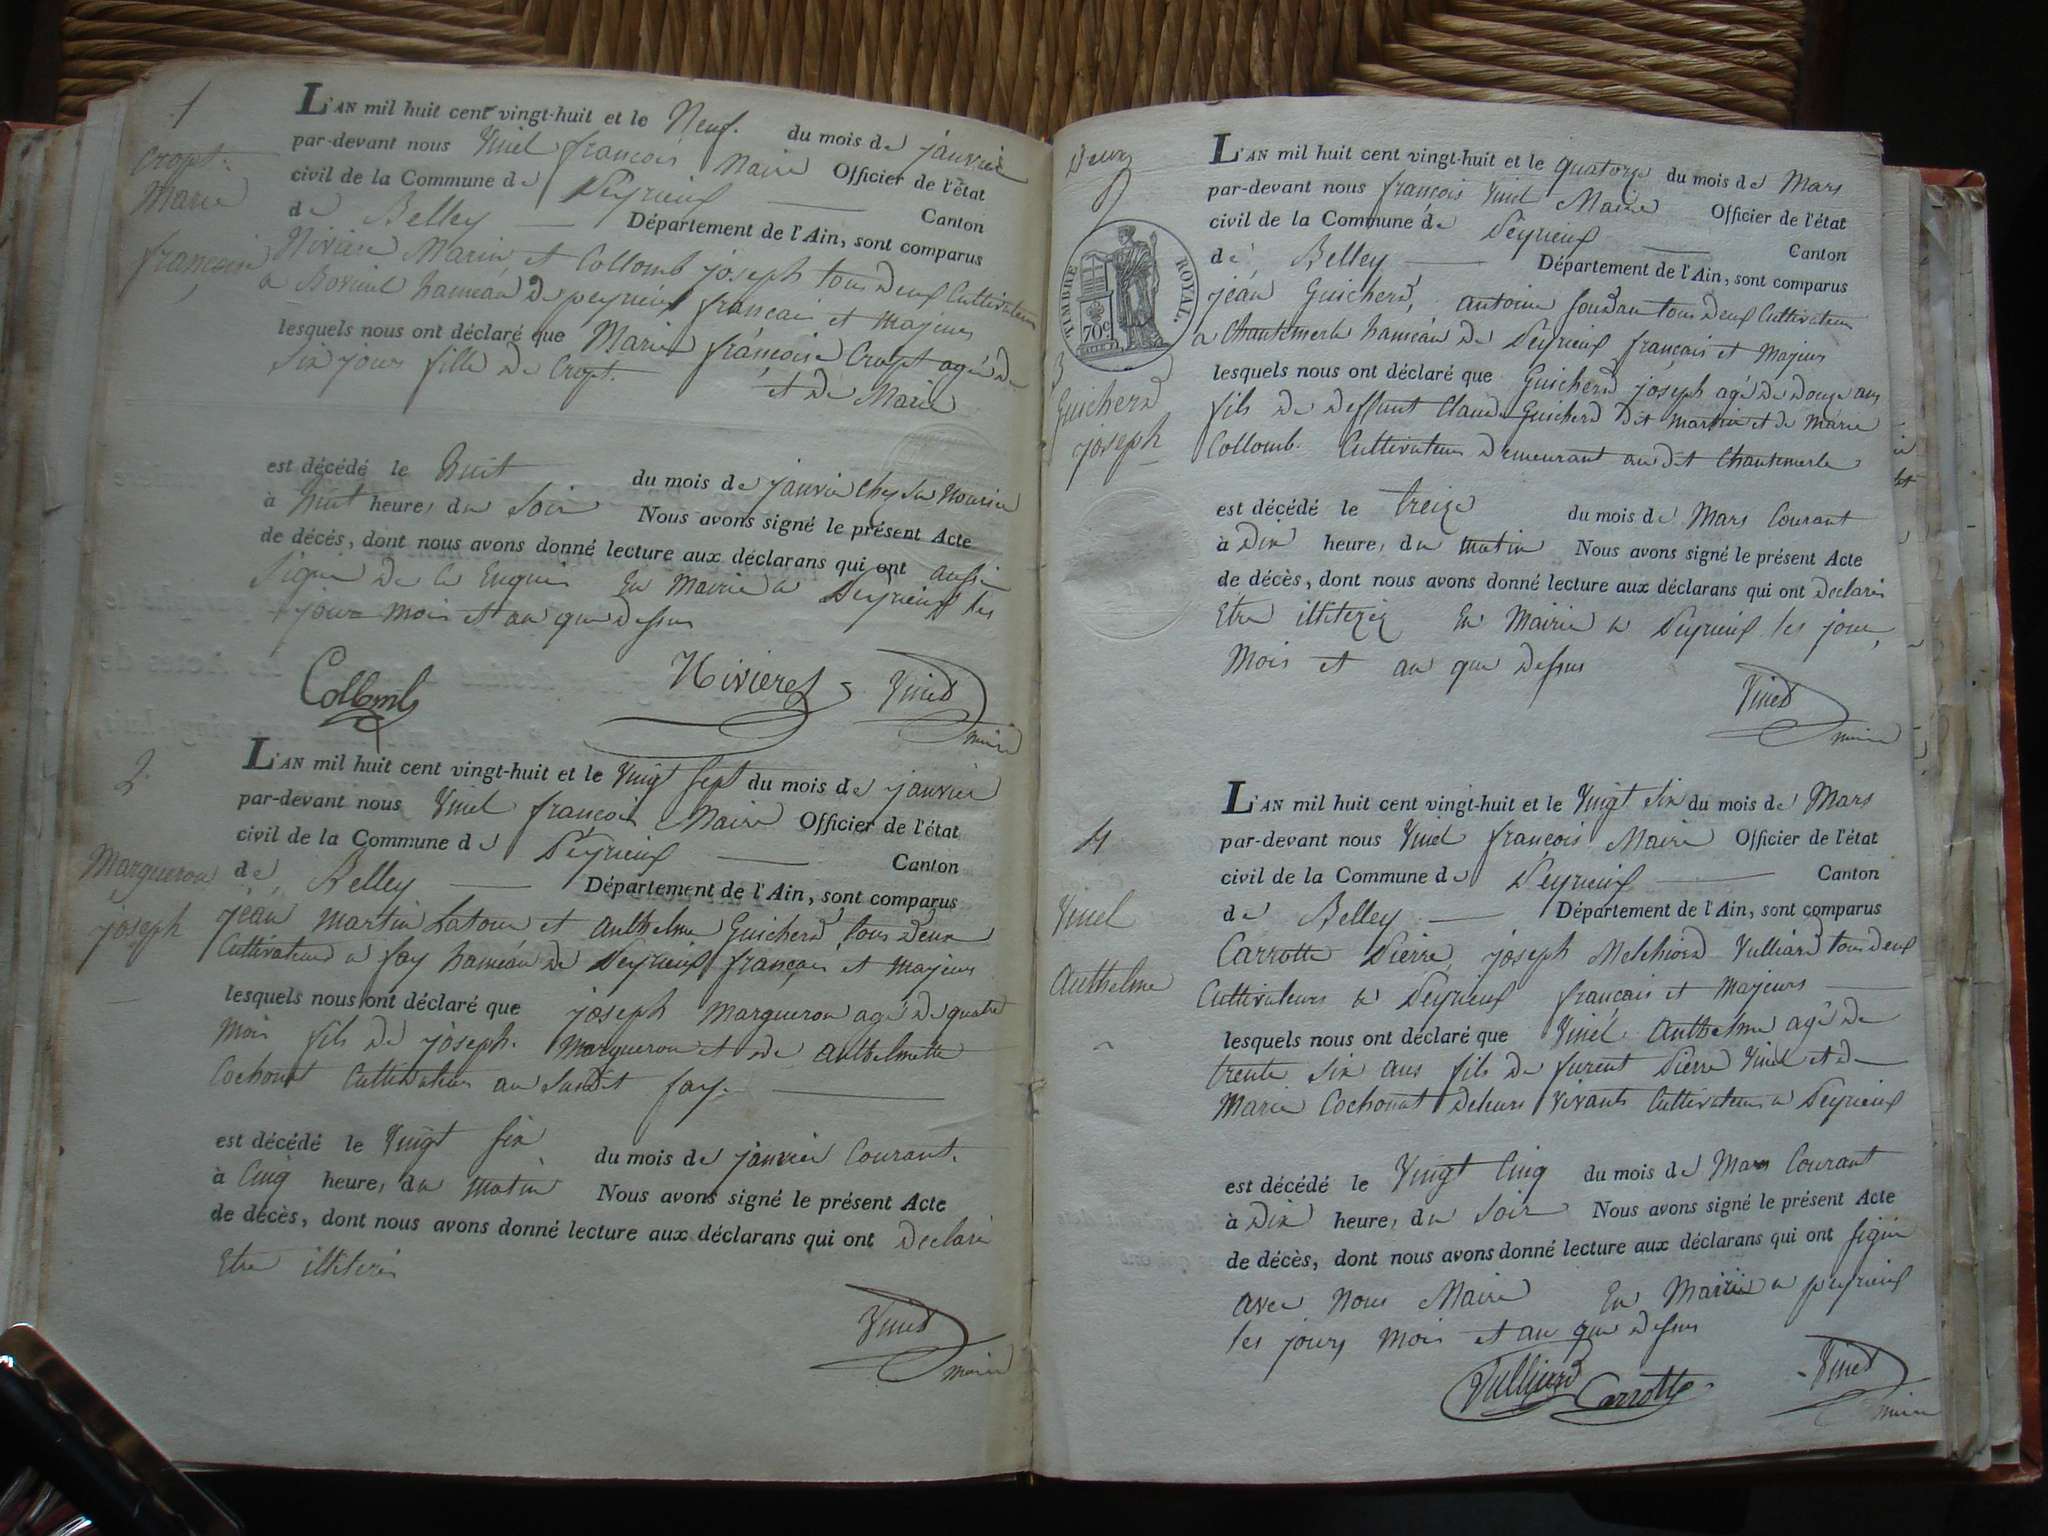 1
Cropt
Marie
françoise
L'AN mil huit cent vingt-huit et le Neuf du mois de janvier
par-devant nous Vinel françois Maire Officier de l'état
civil de la Commune de Peyrieux Canton
de Belley Département de l'Ain, sont comparus
Marin et Collomb joseph tous deux Cultivateurs
a hameau de peyrieux francais et majeurs
lesquels nous ont déclaré que Marie françoise Cropt agé de
Six jours fille de Cropt. et de Marie
est décédé le huit du mois de janvier chez sa Nourice
à huit heure, du Soir Nous avons signé le présent Acte
de décés, dont nous avons donné lecture aux déclarans qui ont aussi
Signé de ce Enquis En Mairie a Peyrieux les
jour mois et an que dessus
Collomb
Vinel
maire
2
Margueron
joseph
L'AN mil huit cent vingt-huit et le Vingt Sept du mois de janvier
par-devant nous Vinel françois Maire Officier de l'état
civil de la Commune de Peyrieux Canton
de Belley Département de l'Ain, sont comparus
jean martin Latour et Anthelme Guicherd tous deux
Cultivateurs a fay hameau de Peyrieux français et majeurs
lesquels nous ont déclaré que joseph Margueron agé de quatre
mois fils de joseph Margueron et de Anthelmette
Cochonat Cultivateurs au Susdit fay.
est décédé le Vingt Six du mois de janvier Courant.
à Cinq heure, du matin Nous avons signé le présent Acte
de décès, dont nous avons donné lecture aux déclarans qui ont declaré
Etre illiterés
Vinel
maire
Deux
TIMBRE ROYAL.
70c
3
Guicherd
joseph
L'AN mil huit cent vingt-huit et le quatorze du mois de Mars
par-devant nous françois Vinel Maire Officier de l'état
civil de la Commune de Peyrieux Canton
de Belley Département de l'Ain, sont comparus
jean Guicherd, antoine tous deux Cultivateurs
a Chantemerle hameau de Peyrieux français et Majeurs
lesquels nous ont déclaré que Guicherd joseph agé de douze ans
fils de deffunt Claude Guicherd dit martin et de Marie
Collomb. Cultivateurs demeurant au dit Chantemerle
est décédé le treize du mois de Mars Courant
à Dix heure, du matin Nous avons signé le présent Acte
de décès, dont nous avons donné lecture aux déclarans qui ont declarés
Etre illiterez En Mairie a Peyrieux les jour,
Mois et an que dessus
Vinel
maire
4
Vinel
Anthelme
L'AN mil huit cent vingt-huit et le Vingt Six du mois de Mars
par-devant nous Vinel françois Maire Officier de l'état
civil de la Commune de Peyrieux Canton
de Belley Département de l'Ain, sont comparus
Carrotte Pierre, joseph Melchiord Vulliard tous deux
Cultivateurs a Peyrieux français et Majeurs
lesquels nous ont déclaré que Vinel Anthelme agé de
trente Six ans fils de furent Pierre Vinel et de
Marie Cochonat Vivants Cultivateurs a Peyrieux
est décédé le Vingt Cinq du mois de Mars Courant
à Dix heure, du Soir Nous avons signé le présent Acte
de décès, dont nous avons donné lecture aux déclarans qui ont signé
avec Nous Maire En Mairie a peyrieux
les jours mois et an que dessus
Vulliard Carrotte
Vinel
maire